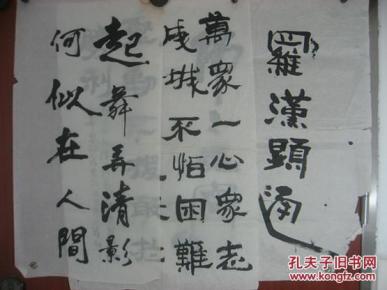 羅漢顯通
萬衆一心衆志
成城不怕困難
起舞弄清影
何似在人間
孔夫子旧书网